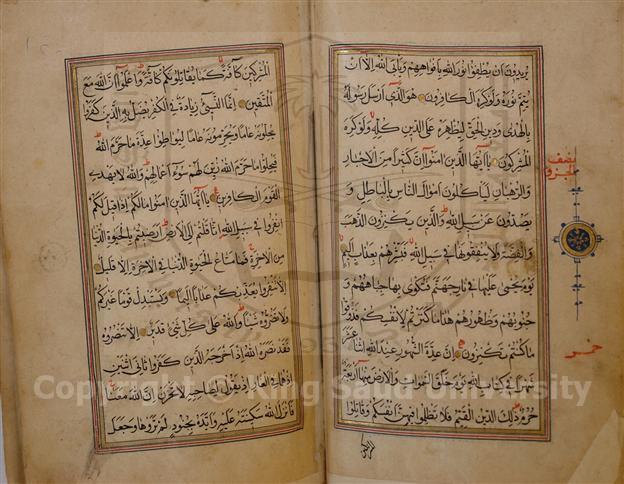 يريدون ان يطفؤا نور الله بافواههم ويأبى الله الا ان
يتم نوره ولو كره الكافرون هو الذي ارسل رسوله
بالهدى ودين الحق ليظهره على الدين كله ولو كره
المشركون يا ايها الذين امنوا ان كثيرا من الاحبار
والرهبان ليأكلون اموال الناس بالباطل و
يصدون عن سبيل الله والذين يكنزون الذهب
والفضة ولا ينفقونها في سبيل الله فبشرهم بعذاب اليم
يوم يحمى عليها في نار جهنم فتكوى بها جباههم و
جنوبهم وظهورهم هذا ما كنزتم لانفسكم فذوقوا
ما كنتم تكنزون ان عدة الشهور عند الله اثنا عشر
شهرا في كتاب الله يوم خلق السموات والارض منها اربعة
حرم ذلك الدين القيم فلا تظلموا فيهن انفسكم وقاتلوا
نصف
الجزو
المشركين كافة كما يقاتلونكم كافة واعلموا ان الله مع
المتقين انما النسيء زيادة في الكفر يضل به الذين كفروا
يحلونه عاما ويحرمونه عاما ليواطؤا عدة ما حرم الله
فيحلوا ما حرم الله زين لهم سوء اعمالهم والله لا يهدي
القوم الكافرين يا ايها الذين امنوا ما لكم اذا قيل لكم
انفروا في سبيل الله اثاقلتم الى الارض ارضيتم بالحيوة الدنيا
من الاخرة فما متاع الحيوة الدنيا في الاخرة الا قليل
الا تنفروا يعذبكم عذابا اليما ويستبدل قوما غيركم
ولا تضروه شيئا والله على كل شيء قدير الا تنصروه
فقد نصره الله اذ اخرجه الذين كفروا ثاني اثنين
اذ هما في الغار اذ يقول لصاحبه لا تحزن ان الله معنا
فانزل الله سكينته عليه وايده بجنود لم تروها وجعل
Copyright © King Saud University